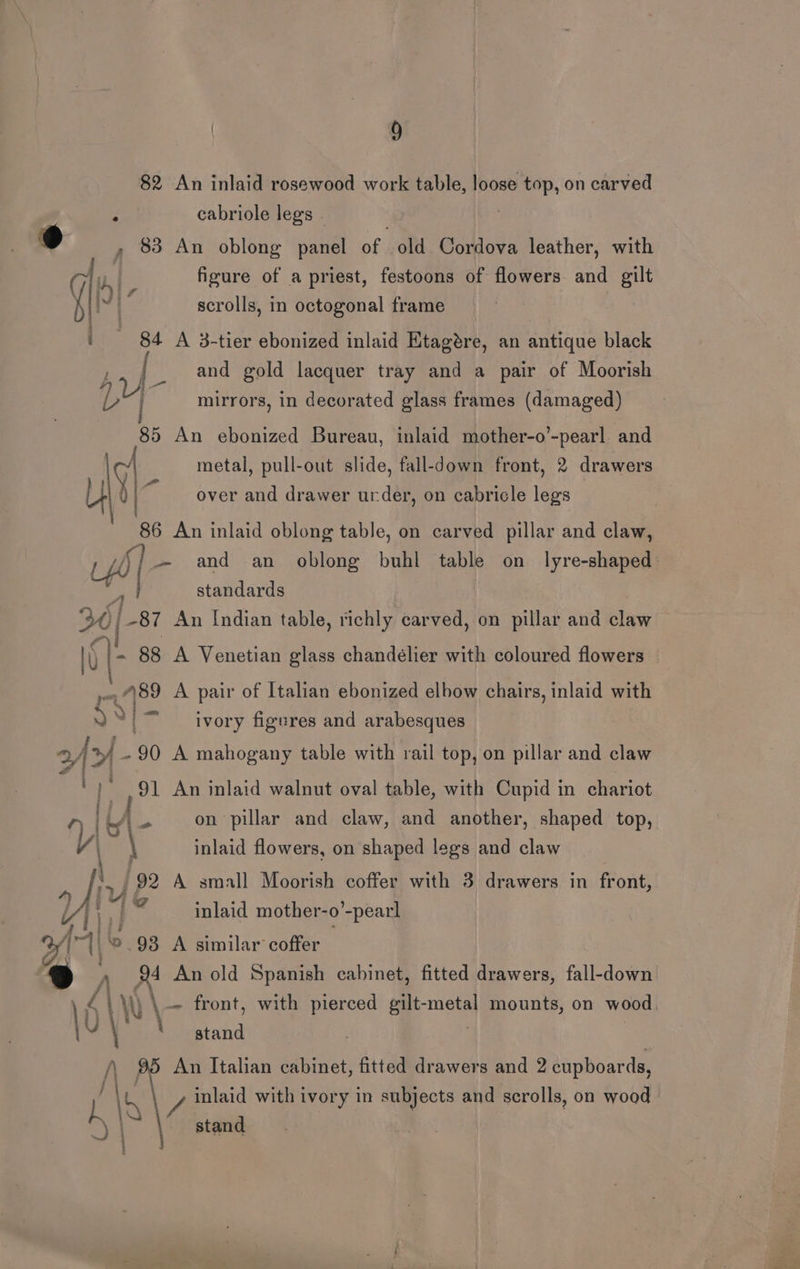 9
82 An inlaid rosewood work table, loose top, on carved
cabriole legs
83 An oblong panel of old Cordova leather, with
figure of a priest, festoons of flowers and gilt
scrolls, in octogonal frame
84 A 3-tier ebonized inlaid Etagère, an antique black
and gold lacquer tray and a pair of Moorish
mirrors, in decorated glass frames (damaged)
85 An ebonized Bureau, inlaid mother-o'-pearl and
metal, pull-out slide, fall-down front, 2 drawers
over and drawer under, on cabriole legs
86 An inlaid oblong table, on carved pillar and claw,
and an oblong buhl table on lyre-shaped
standards
87 An Indian table, richly carved, on pillar and claw
88 A Venetian glass chandelier with coloured flowers
89 A pair of Italian ebonized elbow chairs, inlaid with
ivory figures and arabesques
90 A mahogany table with rail top, on pillar and claw
91 An inlaid walnut oval table, with Cupid in chariot
on pillar and claw, and another, shaped top,
inlaid flowers, on shaped legs and claw
92 A small Moorish coffer with 3 drawers in front,
inlaid mother-o'-pearl
93 A similar coffer
94 An old Spanish cabinet, fitted drawers, fall-down
front, with pierced gilt-metal mounts, on wood
stand
95 An Italian cabinet, fitted drawers and 2 cupboards,
inlaid with ivory in subjects and scrolls, on wood
stand